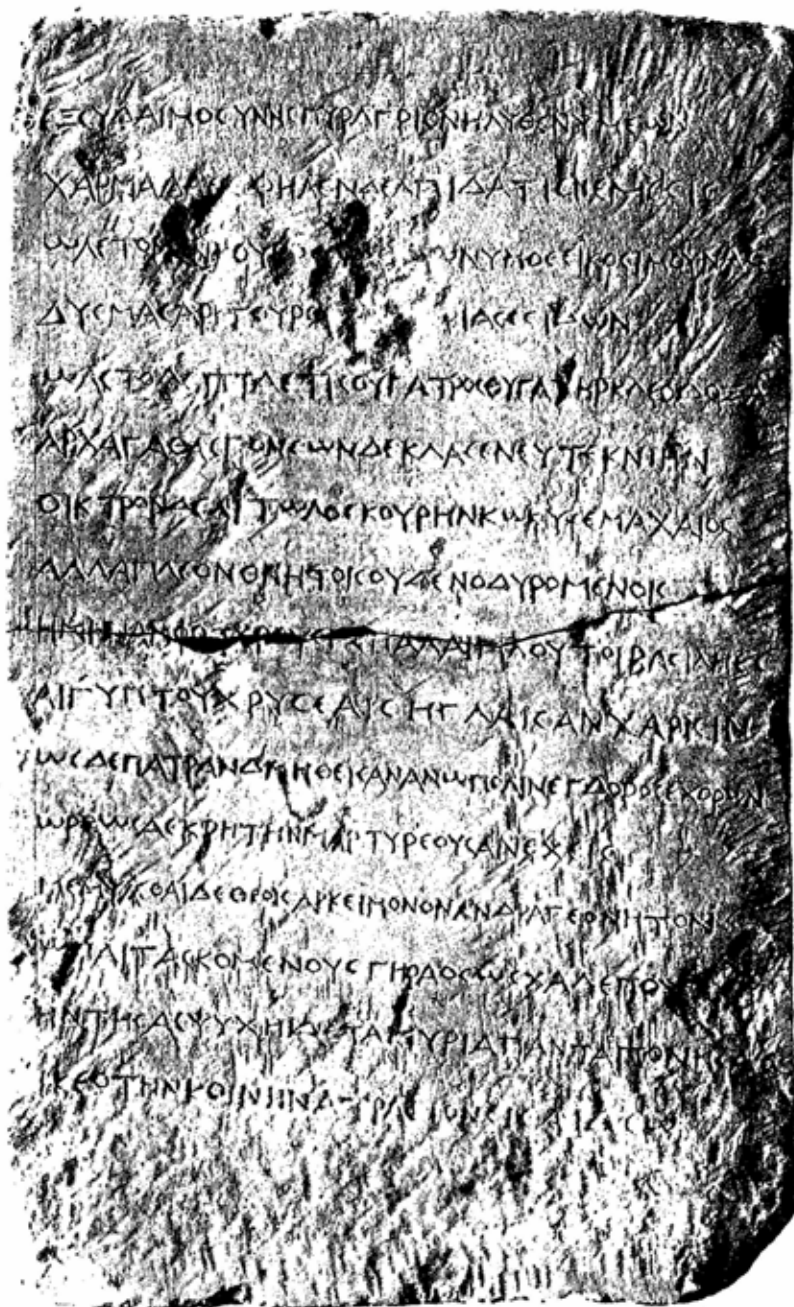 ΕΞΕΥΔΑΙΜΟϹΥΝΗϹΠΥΡΑΓΡΙΟΝΗΛΥΘΕΝΥΜΕΩΝ
ΧΑΡΜΑΔΑΕϹΦΗΛΕΝΔΕΛΠΙΔΑΤΙϹΝΕΜΕϹΙϹ
ΩΛΕΤΟΜΕΝΚΟΥ ΩΝΥΜΟϹΕΙΚΟϹΙΜΟΥΝΑϹ
ΔΥϹΜΑϹΑΡΚΤΟΥΡΟ ΙΑϹΕϹΙΔΩΝ
ΩΛΕΤΟΔΕΠΤΑΕΤΙϹΘΥΓΑΤΡΟϹΘΥΓΑΤΗΡΚΛΕΟΔΟΞΑ
ΑΡΧΑΓΑΘΑϹΓΟΝΕΩΝΔΕΚΛΑϹΕΝΕΥΤΕΚΝΙΗΝ
ΟΙΚΤΡΟΝΔΕΑΙΤΩΛΟϹΚΟΥΡΗΝΚΩΚΥϹΕΜΑΧΑΙΟϹ
ΑΛΛΑΠΛΕΟΝΘΝΗΤΟΙϹΟΥΔΕΝΟΔΥΡΟΜΕΝΟΙϹ
ΗΜΗΝΑΜΦΟΤΕΡΟΥϹΓΕΠΑΛΑΙΠΛΟΥΤΟΙΒΑϹΙΛΗΕϹ
ΑΙΓΥΠΤΟΥΧΡΥϹΕΑΙϹΗΓΛΑΙϹΑΝΧΑΡΙϹΙΝ
ΩϹΔΕΠΑΤΡΑΝΔΜΗΘΕΙϹΑΝΑΝΩΠΟΛΙΝΕΓΔΟΡΟϹΕΧΘΡΩΝ
ΩΡΘΩϹΑϹΚΡΗΤΗΝΜΑΡΤΥΡΕΟΥϹΑΝΕΧΕΙϹ
ΜΕΜΨΑϹΘΑΙΔΕΘΕΟΙϹΑΡΚΕΙΜΟΝΟΝΑΝΔΡΑΓΕΘΝΗΤΟΝ
ΚΟΜΕΝΟΥϹ ΩϹΧΑΛΕΠΟΥ
ΨΥΧΗΙ ΜΥΡΙΑΠΑΝΤΑΠΟΝΗϹ
ΙΚΕΟΤΗΝΚΟΙΝΗΝΑ